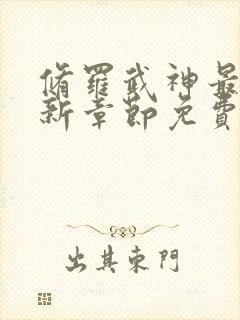 脩羅武神最
新章節免費
出其東門